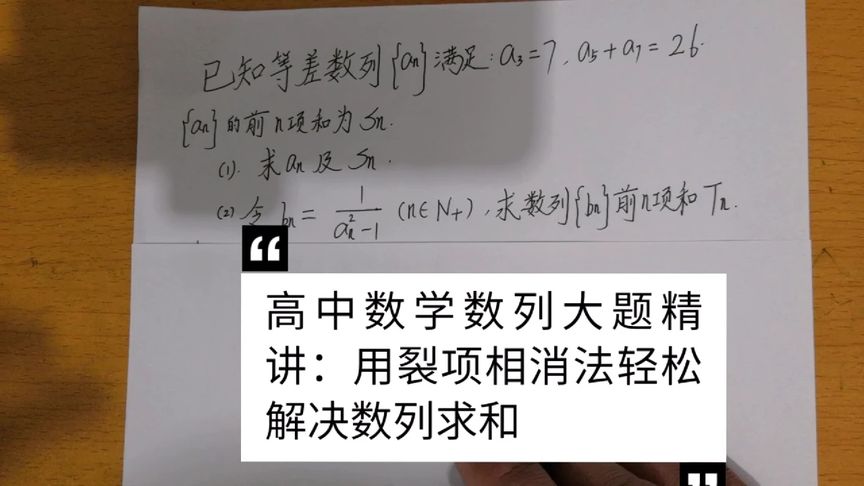 已知等差数列{an}满足:a₃=7,a₅+a₇=26.
{an}的前n项和为Sn.
(1).求an及Sn.
(2)令bn=1/(aₙ²-1)(n∈N₊),求数列{bn}前n项和Tn.
“
高中数学数列大题精
讲：用裂项相消法轻松
解决数列求和
”